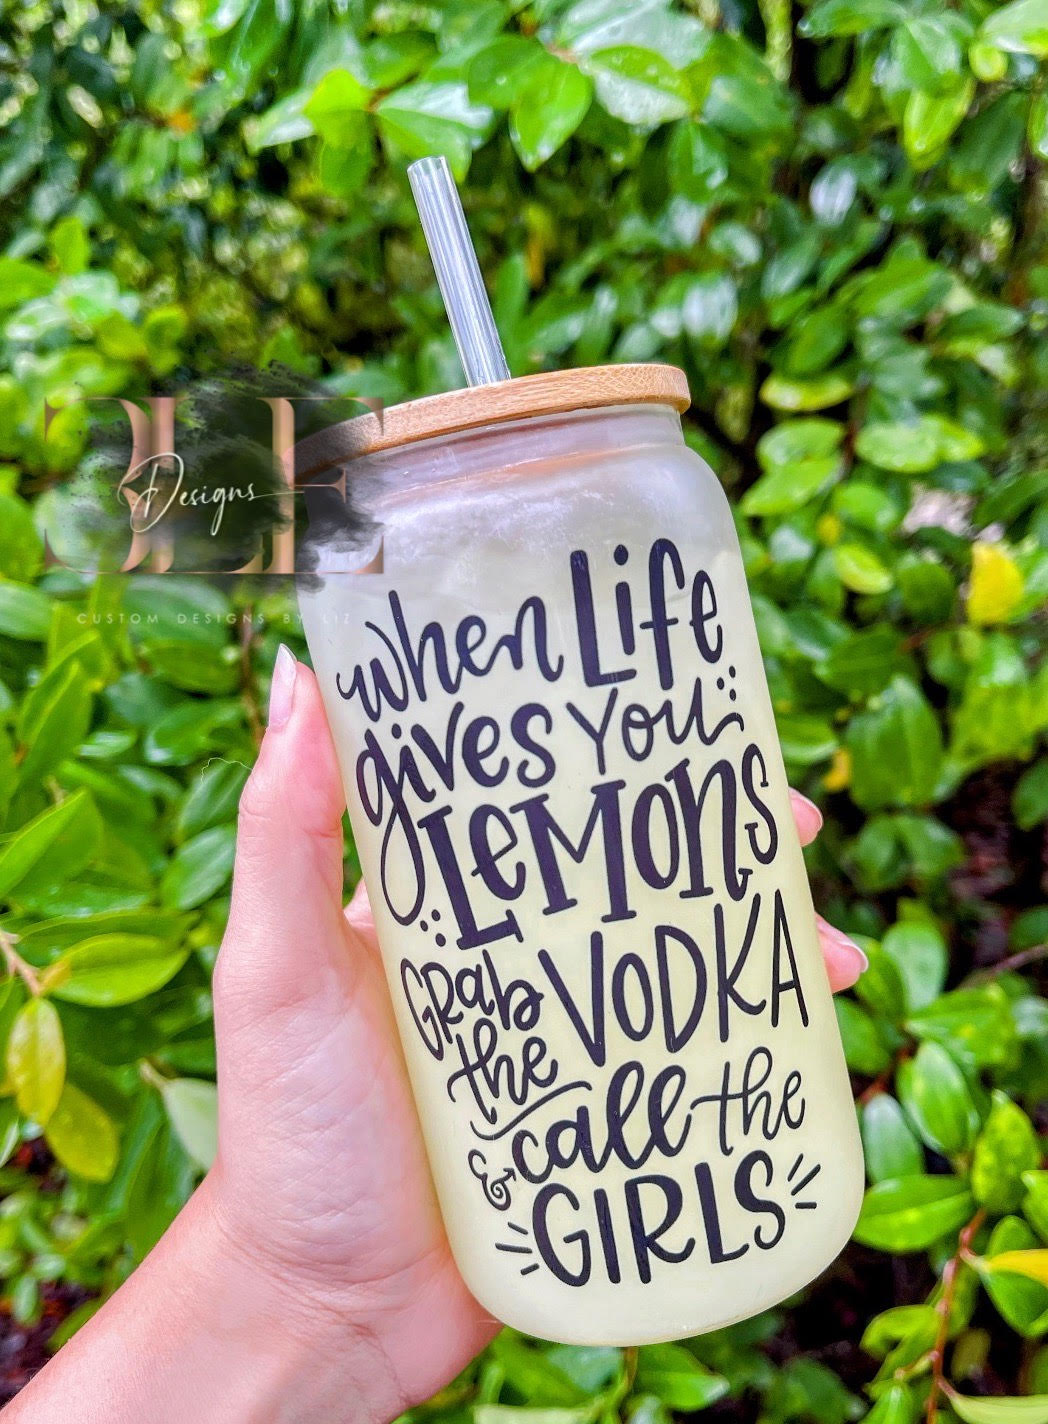 Designs
CUSTOM DESIGNS BY LIZ
when Life
gives you
LeMons
GRab
the VODKA
& call the
GIRLS